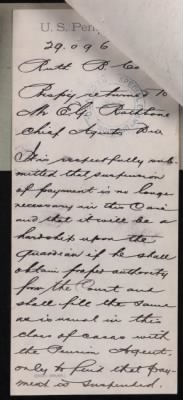 U. S. Pen
29.096
Ruth B Co
Resp'y returned to
Mr E. G. Rathbone
Chief Agents Div
It is respectfully sub-
mitted that suspension
of payment is no longer
necessary in this Case
and that it will be a
hardship upon the
guardian if he shall
obtain proper authority
from the Court and
shall file the same
as is usual in this
class of cases with
the Pension Agent,
only to find that pay-
ment is suspended.